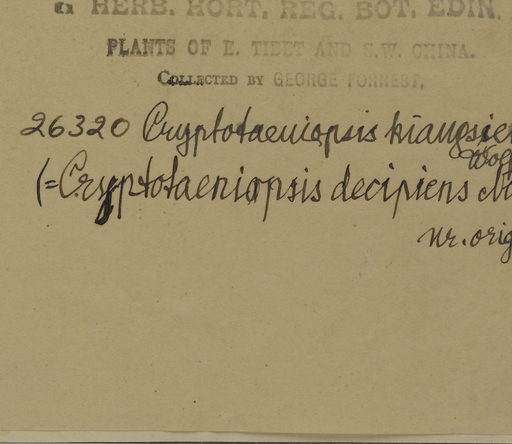 HERB. HORT. REG. BOT. EDIN.
PLANTS OF E. TIBET AND S.W. CHINA.
COLLECTED BY GEORGE FORREST.
26320 Cryptotaeniopsis kiangsien
Wolf
(=Cryptotaeniopsis decipiens No
nr. orig